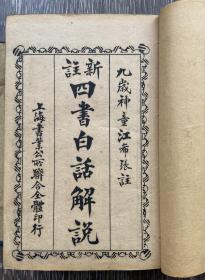 九歲神童江希張註
新註四書白話解說
上海書業公所聯合全體印行